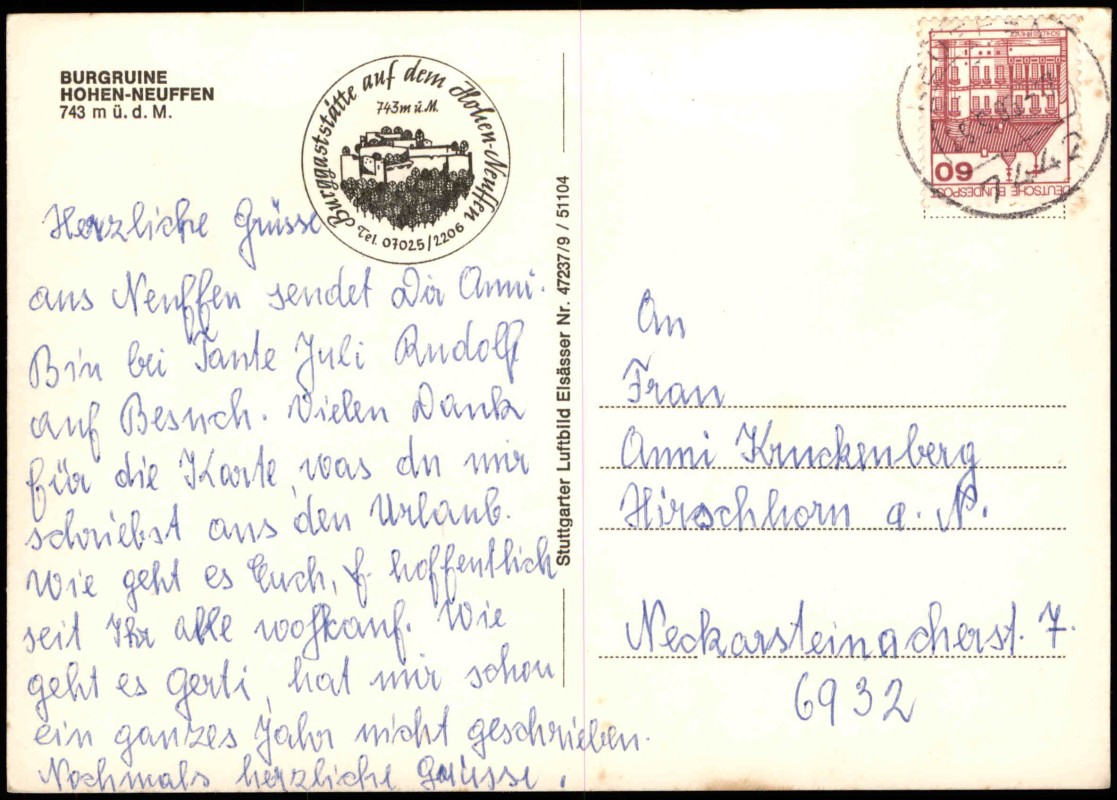 BURGRUINE
HOHEN-NEUFFEN
743 m ü. d. M.
Burggaststätte auf dem Hohen-Neuffen
743 m ü. M.
Tel. 07025/2206
Herzliche Grüsse
aus Neuffen sendet Dir Anni.
Bin bei Tante Juli Rudolf
auf Besuch. Vielen Dank
für die Karte, was du mir
schriebst aus den Urlaub.
Wie geht es Euch, hoffentlich
seit Ihr alle wohlauf. Wie
geht es Gerti, hat mir schon
ein ganzes Jahr nicht geschrieben.
Nochmals herzliche Grüsse.
Stuttgarter Luftbild Elsässer Nr. 47237/9 / 51104
60
DEUTSCHE BUNDESPOST
7442
An
Frau
Anni Kruckenberg
Hirschhorn a. N.
Neckarsteinacherst. 7.
6932